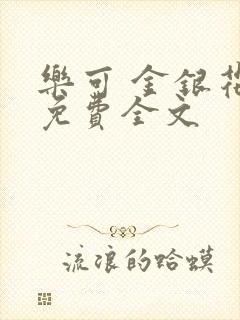 樂可 金銀花
免費全文
流浪的蛤蟆